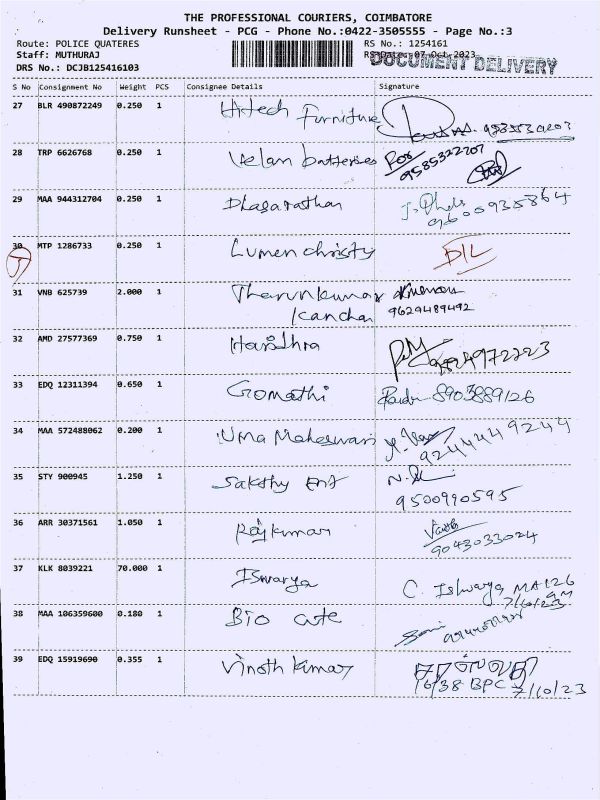 THE PROFESSIONAL COURIERS, COIMBATORE
Delivery Runsheet - PCG - Phone No.:0422-3505555 - Page No.:3
Route: POLICE QUATERES RS No.: 1254161
Staff: MUTHURAJ RS Date: 07-Oct-2023
DOCUMENT DELIVERY
DRS No.: DCJB125416103
S No Consignment No Weight PCS Consignee Details Signature
27 BLR 490872249 0.250 1 Hitech Furniture
28 TRP 6626768 0.250 1 Velan batteries 9585322707
29 MAA 944312704 0.250 1 9600935864
30 MTP 1286733 0.250 1 Lumen christy D/L
31 VNB 625739 2.000 1 Tharunkumar
Kanchan 9629489492
32 AMD 27577369 0.750 1 Haridhra
33 EDQ 12311394 0.650 1 Gomathi 8903889126
34 MAA 572488062 0.200 1 Uma Maheswari 9244449249
35 STY 900945 1.250 1 Sakthy Ent
9500990595
36 ARR 30371561 1.050 1 Rajkumar
9043033024
37 KLK 8039221 70.000 1 Iswarya C. Ishwarya MA126
7/10/23
38 MAA 106359600 0.180 1 Bio cute
39 EDQ 15919690 0.355 1 Vinoth kumar
1638 BPC 7/10/23